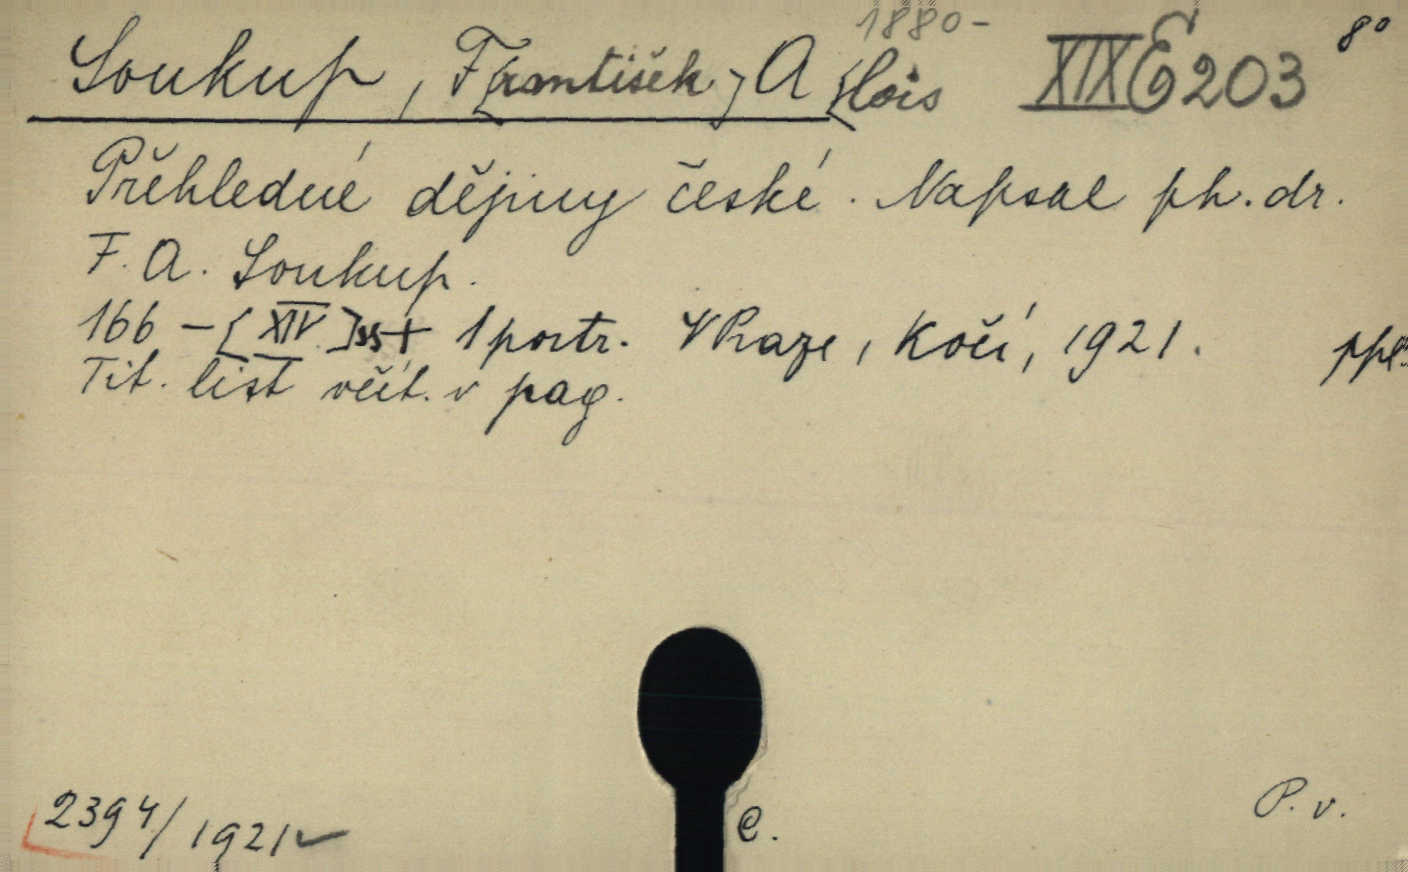 1880-
Soukup, F[rantišek] A[lois XIX E 203 8°
Přehledné dějiny české. Napsal ph. dr.
F. A. Soukup.
166 - [XIV] ss + 1 portr. V Praze, Kočí, 1921.
Tit. list včít. v pag.
2394/1921 ✓
C.
P. v.